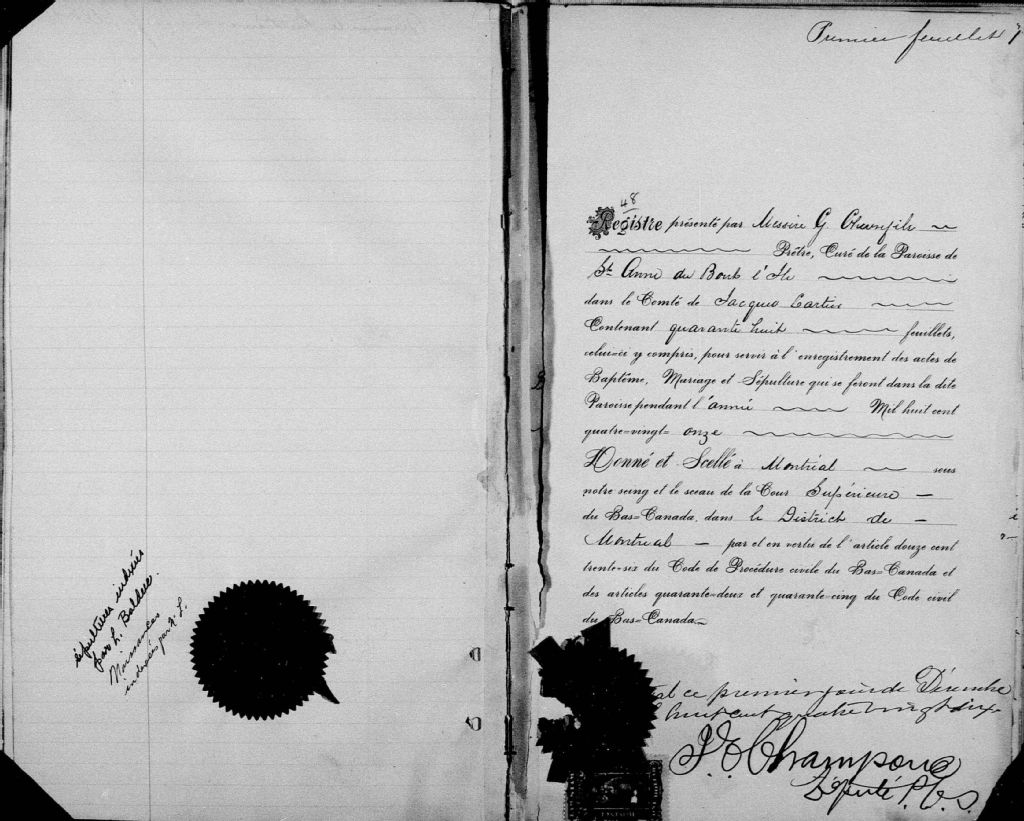 sépultures indexées
par L. Balduc.
Naissances
indexées par F. L.
Premier feuillet
48
Registre présenté par Messire G. Chevrefils
Prêtre, Curé de la Paroisse de
St Anne du Bout l'Ile
dans le Comté de Jacques Cartier
Contenant quarante huit feuillets,
celui=ci y compris, pour servir à l'enregistrement des actes de
Baptême, Mariage et Sépulture qui se feront dans la dite
Paroisse pendant l'année Mil huit cent
quatre=vingt= onze
Donné et Scellé à Montréal sous
notre seing et le sceau de la Cour Supérieure
du Bas=Canada, dans le District de
Montréal par et en vertu de l'article douze cent
trente=six du Code de Procédure civile du Bas=Canada et
des articles quarante=deux et quarante=cinq du Code civil
du Bas=Canada
ce premier jour de Décembre
huit cent quatre vingt dix.
Champoux
Député P. C. S.